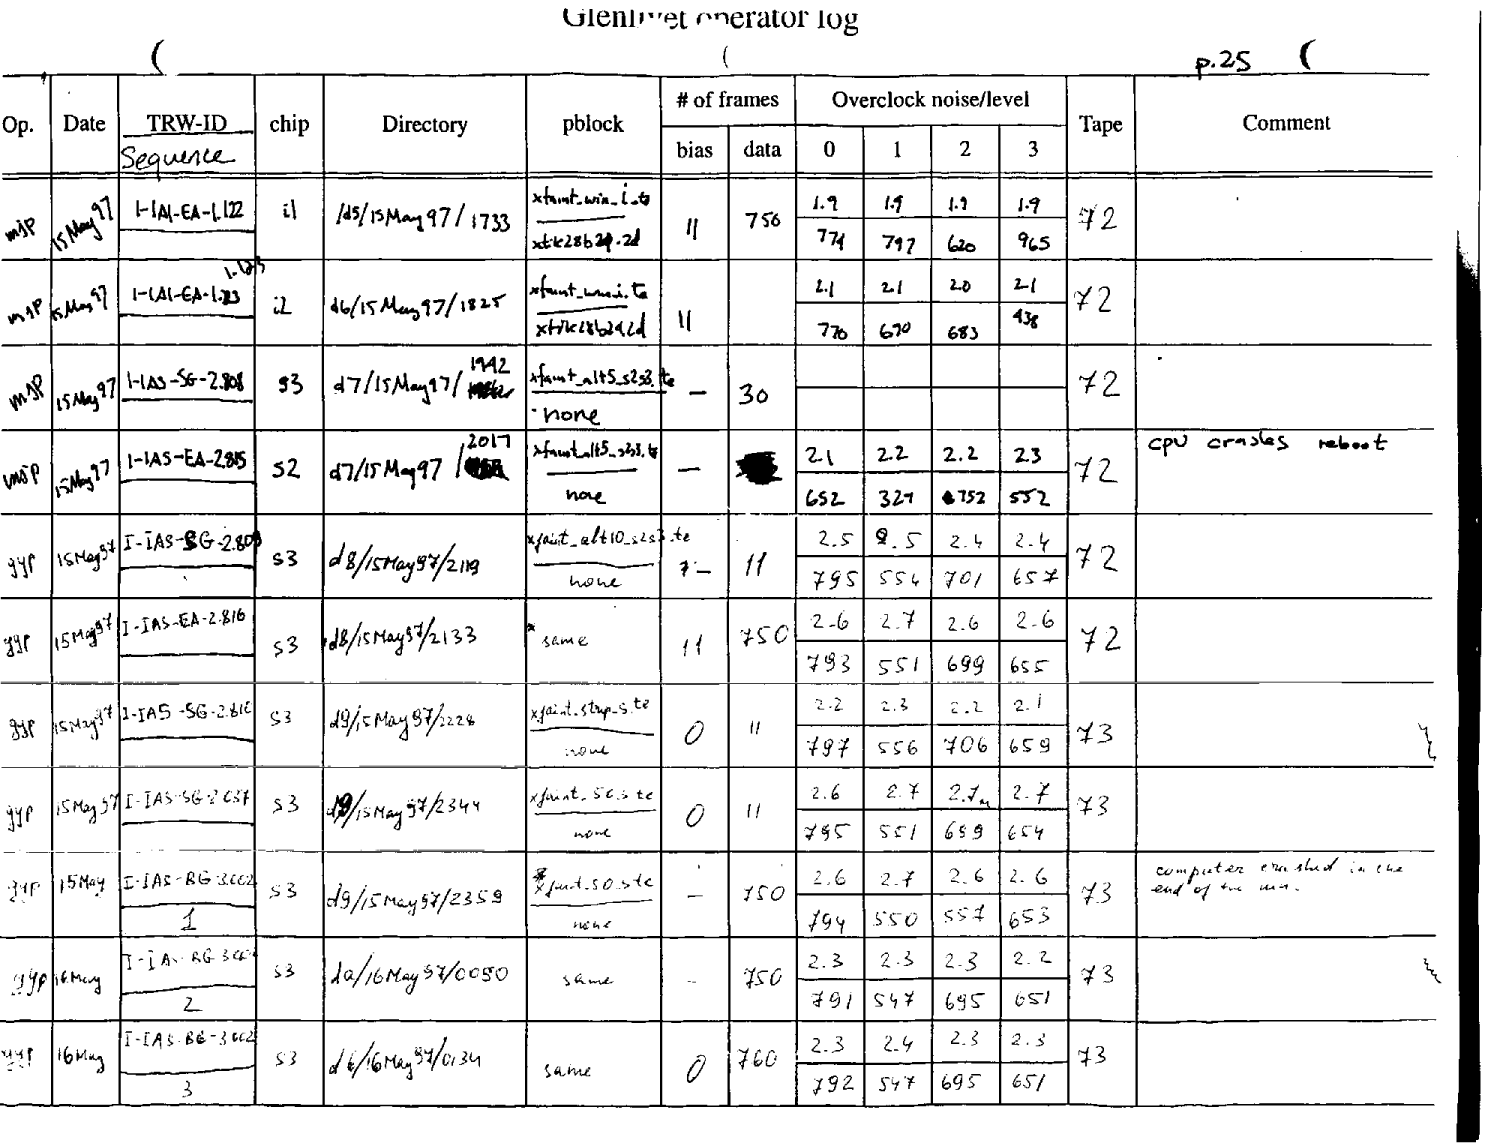 Glenlivet operator log
p.25
Op. Date TRW-ID chip Directory pblock # of frames Overclock noise/level Tape Comment
Sequence bias data 0 1 2 3
mjp 15May97 I-IAI-EA-1.122 i1 /d5/15May97/1733 11 750 1.9 1.9 1.9 1.9 72
774 797 620 965
1.123
mjp 15May97 I-IAI-EA-1.123 i2 d6/15May97/1825 11 2.1 2.1 2.0 2.1 72
770 670 683 438
1942
mjp 15May97 I-IAS-SG-2.808 s3 d7/15May97/ xfaint_alt5_s2s3.te – 30 72
none
2017 cpu crashes reboot
mjp 15May97 I-IAS-EA-2.815 s2 d7/15May97/ – 2.1 2.2 2.2 2.3 72
none 652 327 752 552
gyp 15May97 I-IAS-SG-2.809 s3 d8/15May97/2119 xfaint_alt10_s2s3.te – 11 2.5 2.5 2.4 2.4 72
none 795 554 701 657
gyp 15May97 I-IAS-EA-2.816 s3 d8/15May97/2133 same 11 750 2.6 2.7 2.6 2.6 72
793 551 699 655
gyp 15May97 I-IAS-SG-2.810 s3 d9/15May97/2228 0 11 2.2 2.3 2.2 2.1 73
none 797 556 706 659
gyp 15May97 s3 d9/15May97/2344 0 11 2.6 2.7 2.7 2.7 73
none 795 551 699 654
gyp 15May I-IAS-RG-3.002 s3 d9/15May97/2359 – 750 2.6 2.7 2.6 2.6 73 computer crashed in the
1 none 794 550 557 653 end of the run.
gyp 16May s3 da/16May97/0050 same – 750 2.3 2.3 2.3 2.2 73
2 791 547 695 651
gyp 16May s3 16May97/0134 same 0 760 2.3 2.4 2.3 2.3 73
3 792 547 695 651